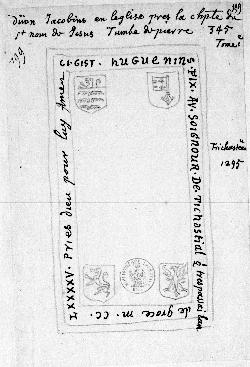 Dijon Jacobins en leglise pres la chple du
st nom de Jesus Tumbe de pierre 345
Tome
199
CI. GIST. HUGUENINS.
FIX. AV. SOIGNOUR DE TICHASTIAL Q trapassai lan
de grace M. CC.
LXXXXV. Pries dieu pour luy Amen
Trichasteau
1295